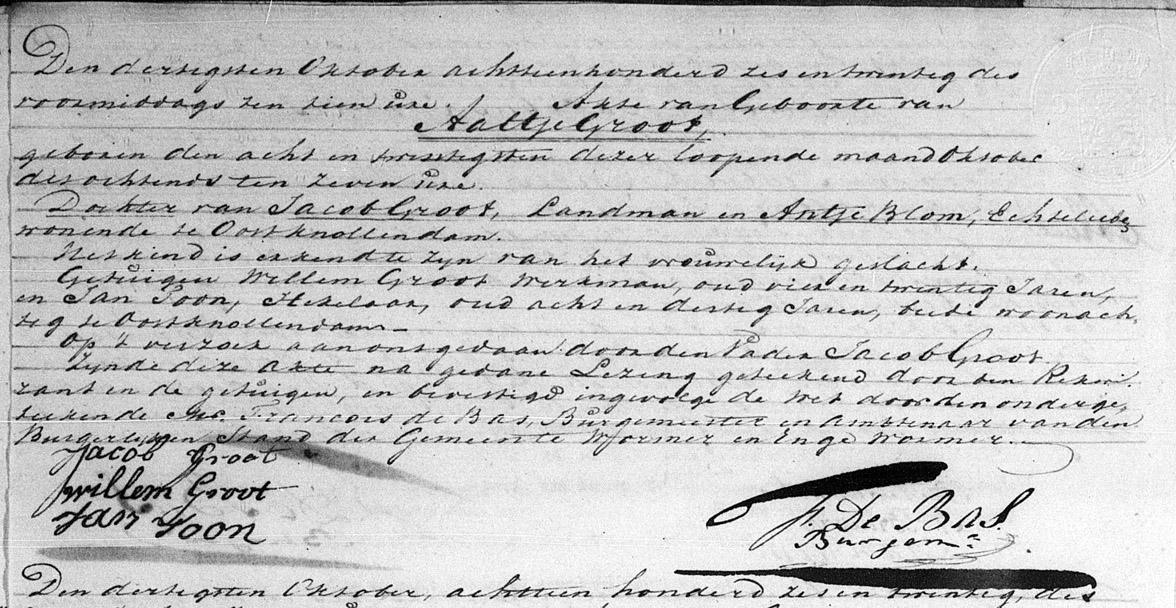 Den dertigsten Oktober achttienhonderd zes en twintig des
voormiddags ten tien ure. Akte van Geboorte van
Aaltje Groot,
geboren den acht en twintigsten dezer loopende maand Oktober
des ochtends ten zeven ure.
Dochter van Jacob Groot, Landman en Antje Blom, Echtelieden
wonende te Oostknollendam.
Het kind is erkend te zyn van het vrouwelyk geslacht.
Getuigen Willem Groot Werkman, oud vier en twintig Jaren,
en Jan Toon, Hekelaar, oud acht en dertig Jaren, beide woonach,
tig te Oostknollendam.
Op 't verzoek aan ons gedaan door den Vader Jacob Groot.
Zynde deze akte na gedane Lezing geteekend door den Rekwi,
rant en de getuigen, en bevestigd ingevolge de wet door den onderge,
teekende Francois de Bas, Burgemeester en Ambtenaar van den
Burgerlyken Stand der Gemeente Wormer en Enge Wormer.
Jacob Groot
Willem Groot
Jan Toon
F. De Bas.
Burgemr.
Den dertigsten Oktober, achttien honderd zes en twintig, des